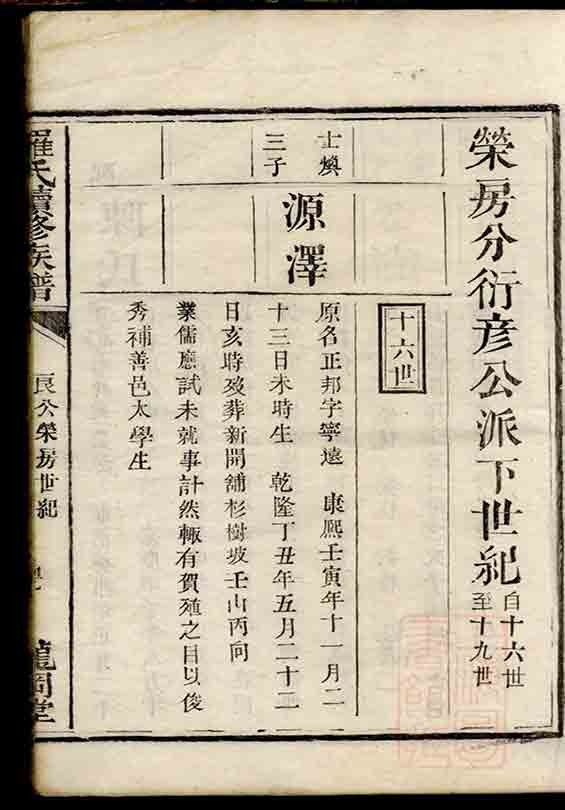 榮房分衍彥公派下世紀
自十六世
至十九世
十六世
士煥
三子
源澤
原名正邦字寧遠 康熙壬寅年十一月二
十三日未時生 乾隆丁丑年五月二十二
日亥時歿葬新開舖杉樹坡壬山丙向
業儒應試未就事計然輙有賀殖之目以俊
秀補善邑太學生
羅氏續修族譜
良公榮房世紀